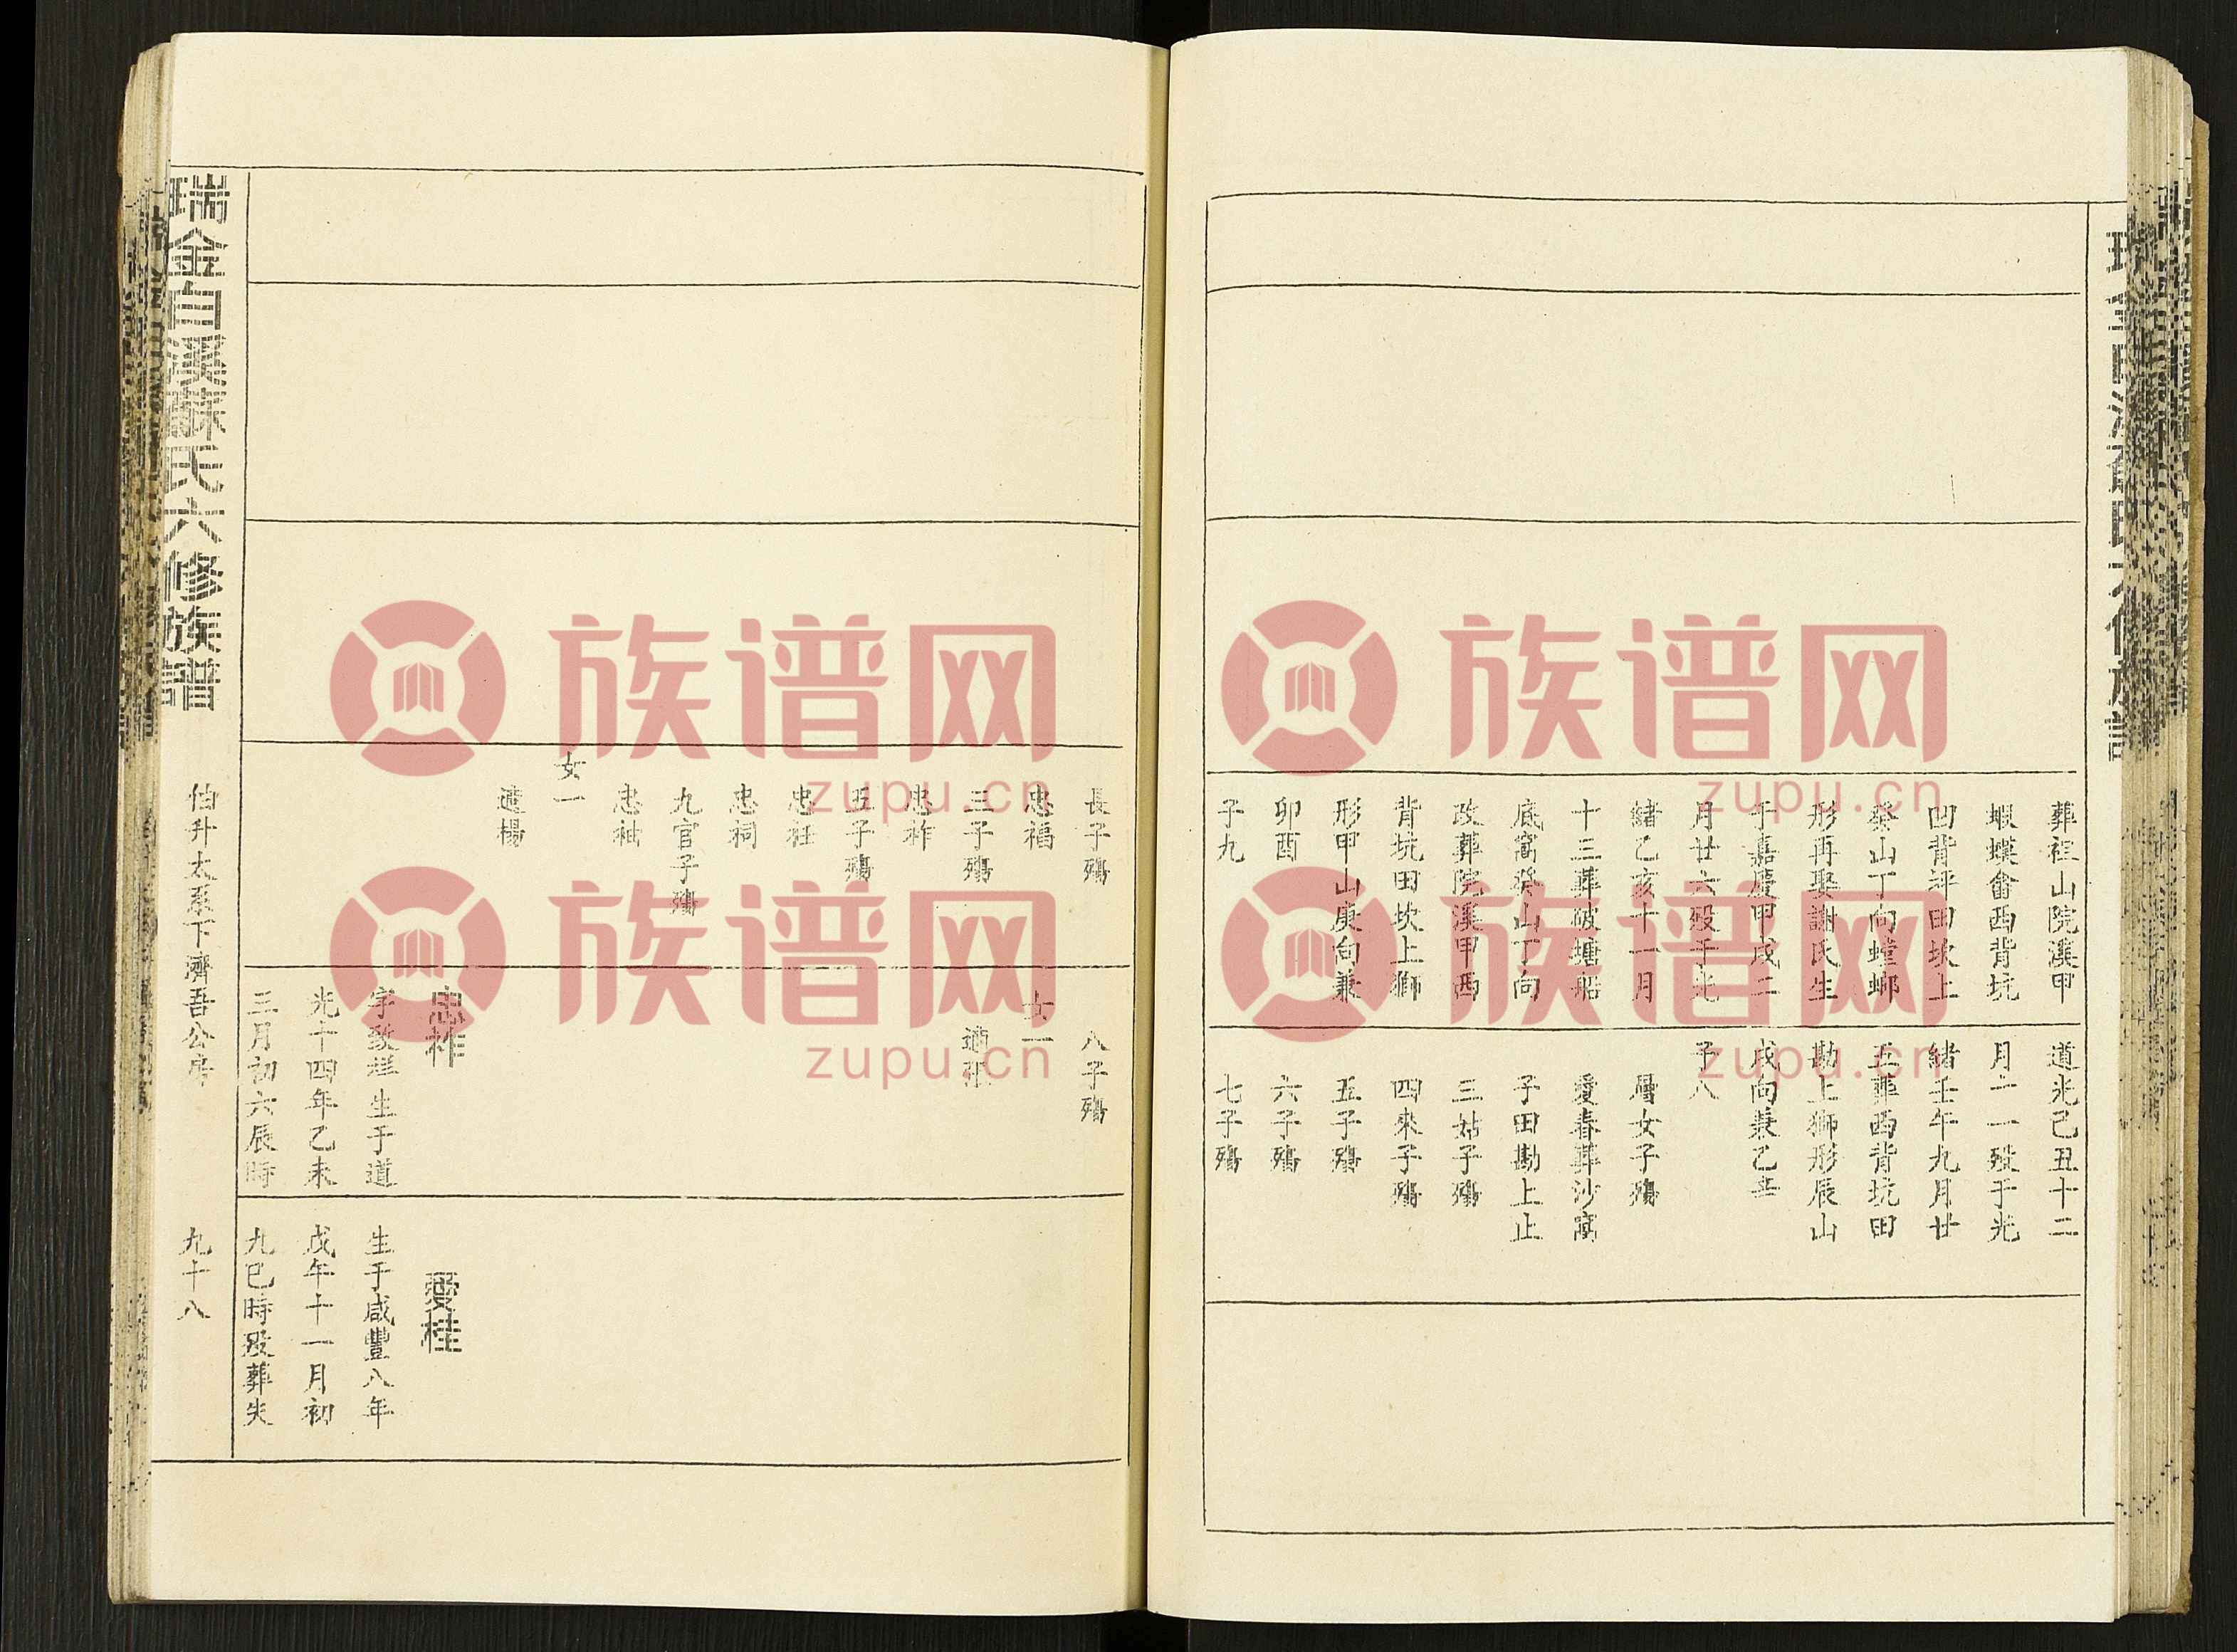 葬祖山院溪甲
蝦蟆畲西背坑
凹背評田坎上
癸山丁向螳螂
形再娶謝氏生
于嘉慶甲戌二
月廿六殁于光
緒乙亥十一月
十三葬破塘船
底窩癸山丁向
改葬院溪甲西
背坑田坎上獅
形甲山庚向兼
卯酉
子九
道光己丑十二
月十一殁于光
緒壬午九月廿
五葬西背坑田
勘上獅形辰山
戌向兼乙辛
子八
層女子殤
愛春葬沙窩
子田勘上止
三姑子殤
四來子殤
五子殤
六子殤
七子殤
長子殤
忠福
三子殤
忠祚
五子殤
忠祠
九官子殤
忠袖
女一
適楊
八子殤
女一
適張
忠祚
字致祥生于道
光十四年乙未
三月初六辰時
愛桂
生于咸豐八年
戊午十一月初
九巳時殁葬失
瑞金白溪蘇氏六修族譜
伯升太系下濟吾公房
九十八
族谱网
zupu.cn
族谱网
zupu.cn
族谱网
zupu.cn
族谱网
zupu.cn